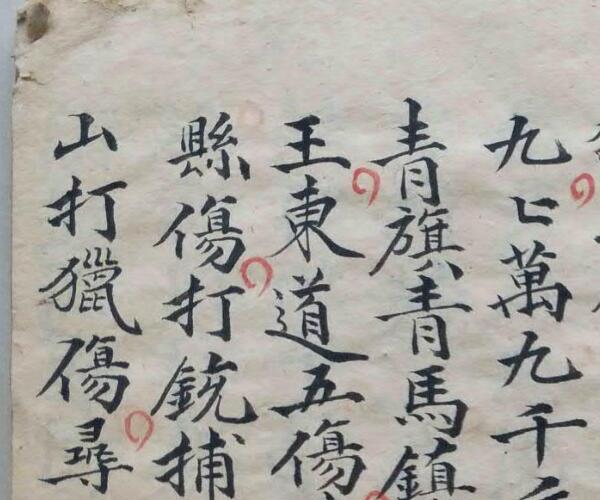 九萬九千
青旗青馬鎮
王東道五傷
縣傷打銃捕
山打獵傷尋